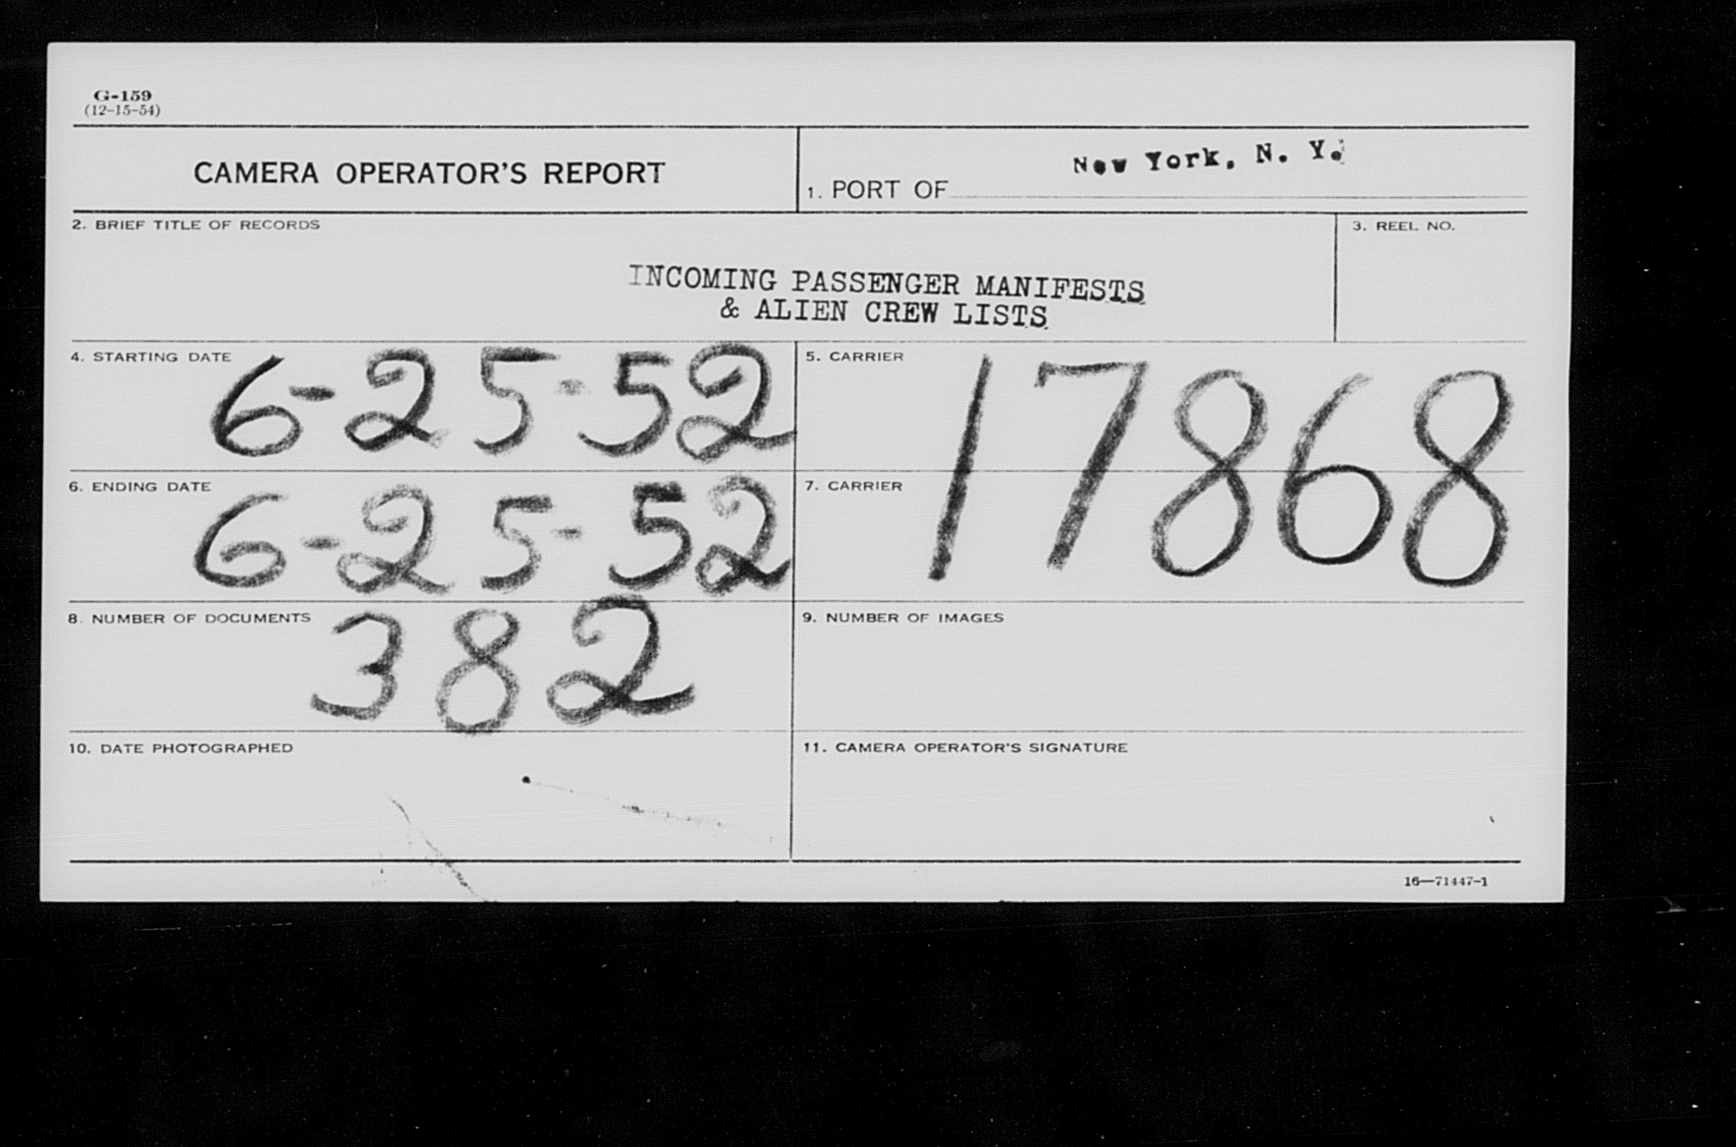 G-159
(12-15-54)
CAMERA OPERATOR'S REPORT
1. PORT OF New York, N. Y.
2. BRIEF TITLE OF RECORDS
3. REEL NO.
INCOMING PASSENGER MANIFESTS
& ALIEN CREW LISTS
4. STARTING DATE 6-25-52
5. CARRIER
17868
6. ENDING DATE 6-25-52
7. CARRIER
8. NUMBER OF DOCUMENTS 382
9. NUMBER OF IMAGES
10. DATE PHOTOGRAPHED
11. CAMERA OPERATOR'S SIGNATURE
16—71447-1